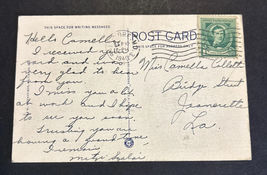 THIS SPACE FOR WRITING MESSAGES
POST CARD
Hello Camella
I received your
card and was
very glad to hear
from you.
I miss you a lot
at work and hope
to see you soon.
Trusting you are
having a good time
I remain
Miss Camella
Bridge Street
Jeanerette
La.